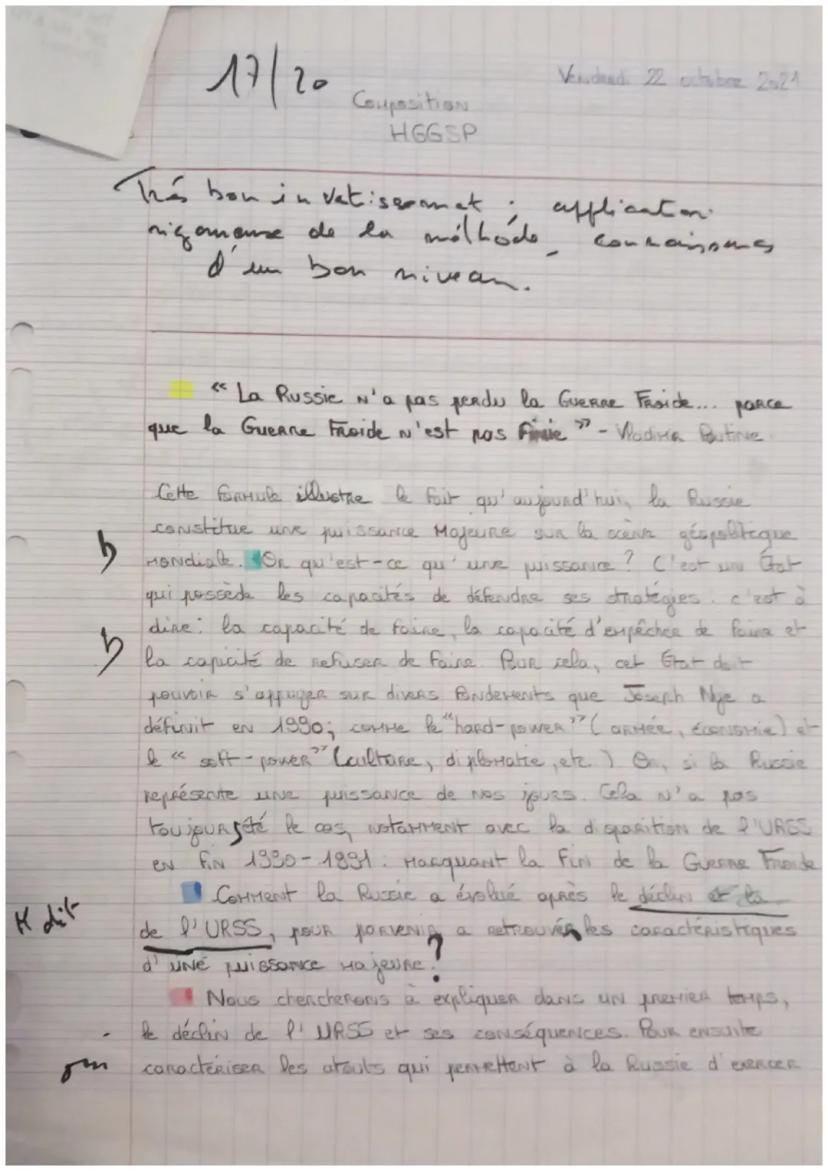 17/20
Vendredi 22 octobre 2021
Composition
HGGSP
Très bon investissement ; application
rigoureuse de la méthode, connaissances
d'un bon niveau.
« La Russie n'a pas perdu la Guerre Froide... parce
que la Guerre Froide n'est pas finie » - Vladimir Poutine.
Cette formule illustre le fait qu'aujourd'hui, la Russie
constitue une puissance majeure sur la scène géopolitique
mondiale. Or qu'est-ce qu'une puissance ? C'est un État
qui possède les capacités de défendre ses stratégies. c'est à
dire : la capacité de faire, la capacité d'empêcher de faire et
la capacité de refuser de faire. Pour cela, cet État doit
pouvoir s'appuyer sur divers fondements que Joseph Nye a
définit en 1990; comme le "hard-power" (armée, économie) et
le « soft-power" (culture, diplomatie, etc.) Or, si la Russie
représente une puissance de nos jours. Cela n'a pas
toujours été le cas, notamment avec la disparition de l'URSS
en fin 1990-1991 : marquant la fin de la Guerre Froide
Comment la Russie a évolué après le déclin et la
de l'URSS, pour parvenir a retrouver les caractéristiques
d'une puissance majeure ?
Nous chercherons à expliquer dans un premier temps,
le déclin de l'URSS et ses conséquences. Pour ensuite
caractériser les atouts qui permettent à la Russie d'exercer